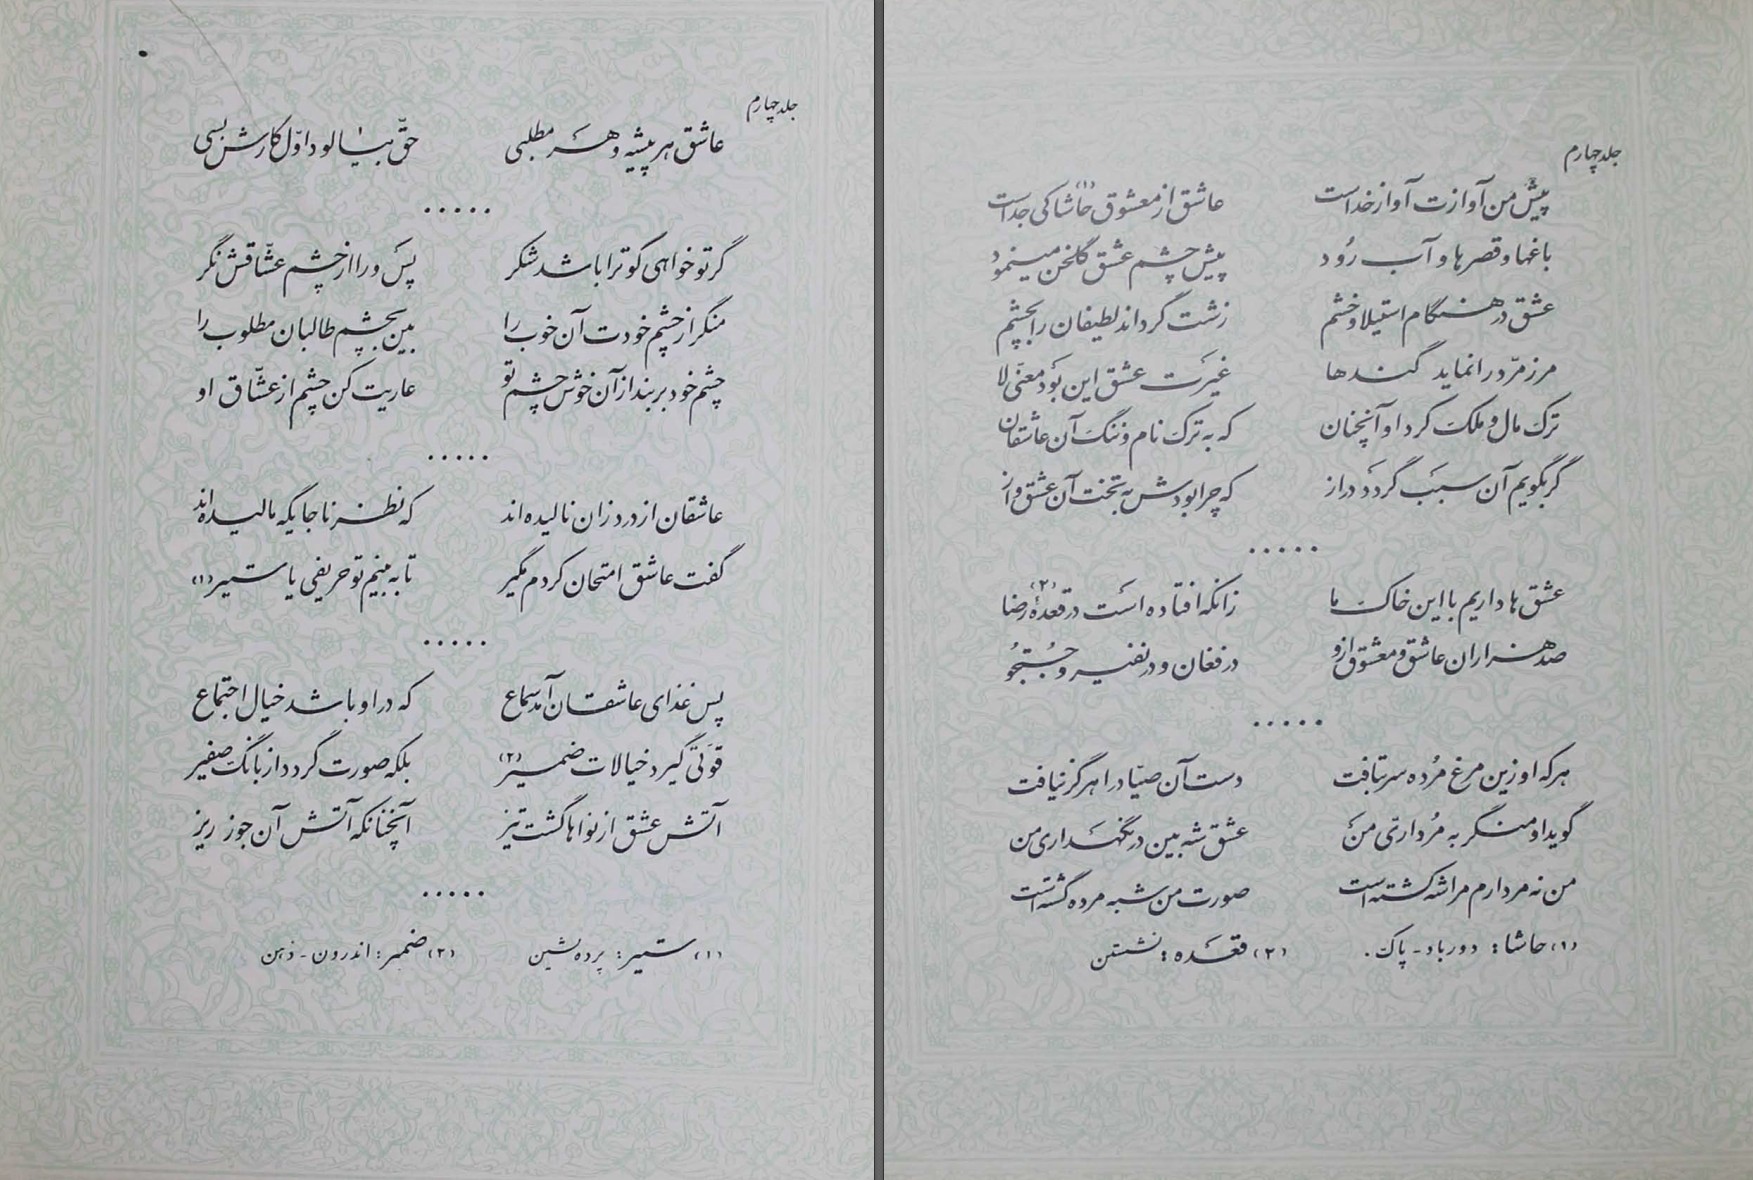 جلد چهارم
پیش من آوازت آواز خداست عاشق از معشوق (۱) حاشا کی جداست
باغها و قصرها و آب رُود پیش چشم عشق گلخن مینمود
عشق در هنگام استیلا و خشم زشت گرداند لطیفان را بچشم
مر زمرّد را نماید گندها غیرت عشق این بَود معنّی لا
ترک مال و ملک کرد او آنچنان که به ترک نام و ننگ آن عاشقان
گر بگویم آن سبب گردد دراز که چرا بودش به تخت آن عشق و از
.....
عشق ها داریم با این خاک ما زانکه افتاده است در قعدهٔ (۲) رضا
صد هزاران عاشق و معشوق ازو در فغان و در نفیر و جُستجُو
.....
هر که او زین مرغ مُرده سر بتافت دست آن صیّاد را هرگز نیافت
گوید او منگر به مُرداریّ من عشق شه بین در نگهداری من
من نه مردارم مرا شه کشته است صورت من شبه مرده گشته است
(۱) حاشا: دور باد - پاک. (۲) قعده: نشستن
جلد چهارم
عاشق هر پیشه و هر مطلبی حقّ بیالود اوّل کارش بسی
.....
گر تو خواهی کو ترا باشد شکر پس ورا از چشم عشّاقش نگر
منگر از چشم خودت آن خوب را بین بچشم طالبان مطلوب را
چشم خود بر بند از آن خوش چشم تو عاریت کن چشم از عشّاق او
.....
عاشقان از درد زان نالیده اند که نظر ناجایگه مالیده اند
گفت عاشق امتحان کردم مگیر تا به بینم تو حریفی یا ستیر (۱)
.....
پس غذای عاشقان آمد سماع که در او باشد خیال اجتماع
قوّتی گیرد خیالات ضمیر (۲) بلکه صورت گردد از بانگ صفیر
آتش عشق از نواها گشت تیز آنچنانکه آتش آن جوز ریز
.....
(۱) ستیر: پرده نشین (۲) ضمیر: اندرون - ذهن